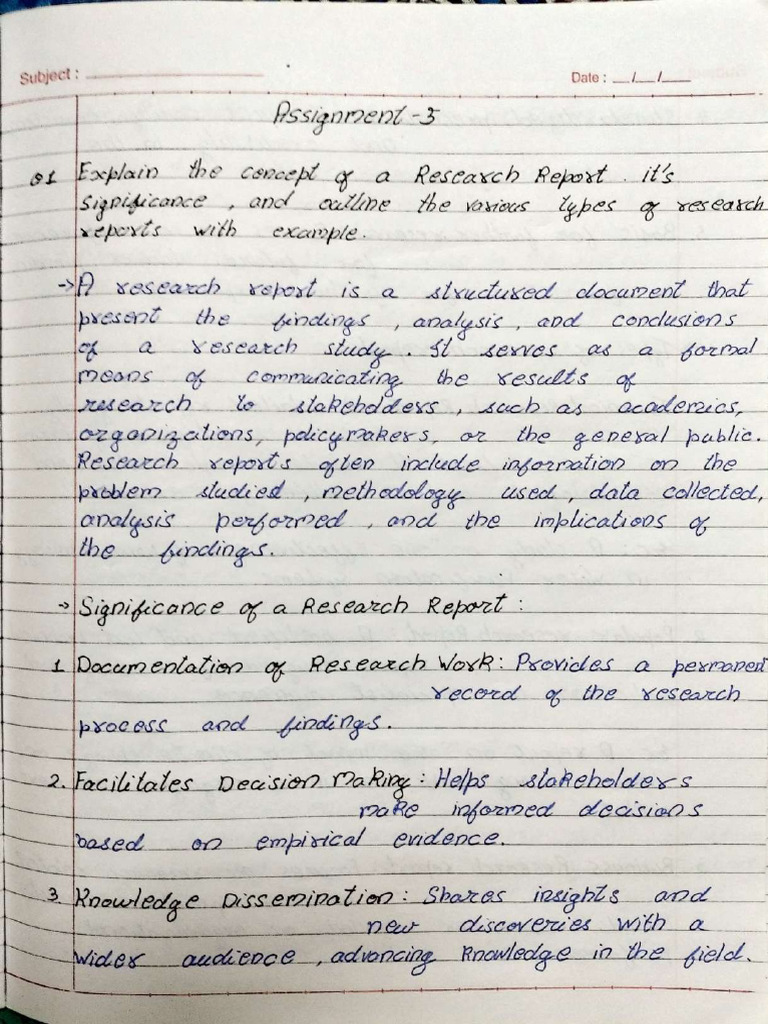 Subject :
Date : __/__/__
Assignment - 5
Q1 Explain the concept of a Research Report. it's
significance, and outline the various types of research
reports with example.
-> A research report is a structured document that
present the findings, analysis, and conclusions
of a research study. It serves as a formal
means of communicating the results of
research to stakeholders, such as academics,
organizations, policymakers, or the general public.
Research reports often include information on the
problem studied, methodology used, data collected,
analysis performed, and the implications of
the findings.
-> Significance of a Research Report :
1 Documentation of Research Work : Provides a permanent
record of the research
process and findings.
2. Facilitates Decision Making : Helps stakeholders
make informed decisions
based on empirical evidence.
3. Knowledge Dissemination : Shares insights and
new discoveries with a
wider audience, advancing knowledge in the field.